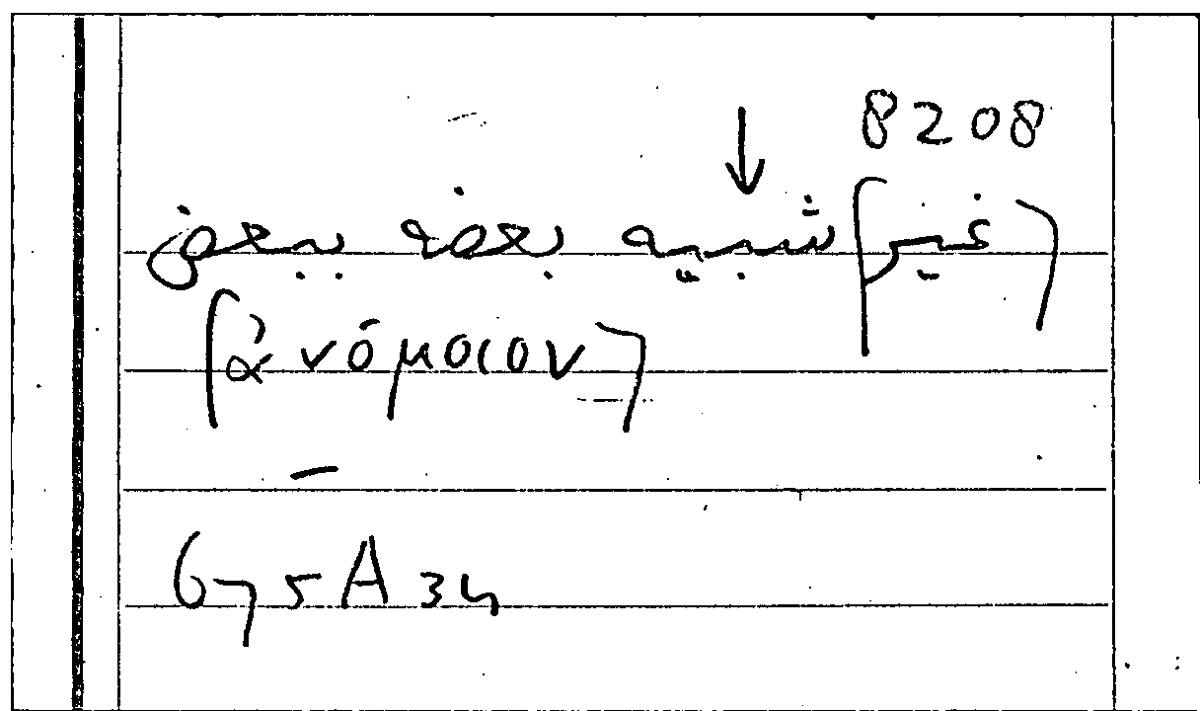 8208
↓
(غير) شبيه بعضه ببعض
(ἀνόμοιον)
675A34